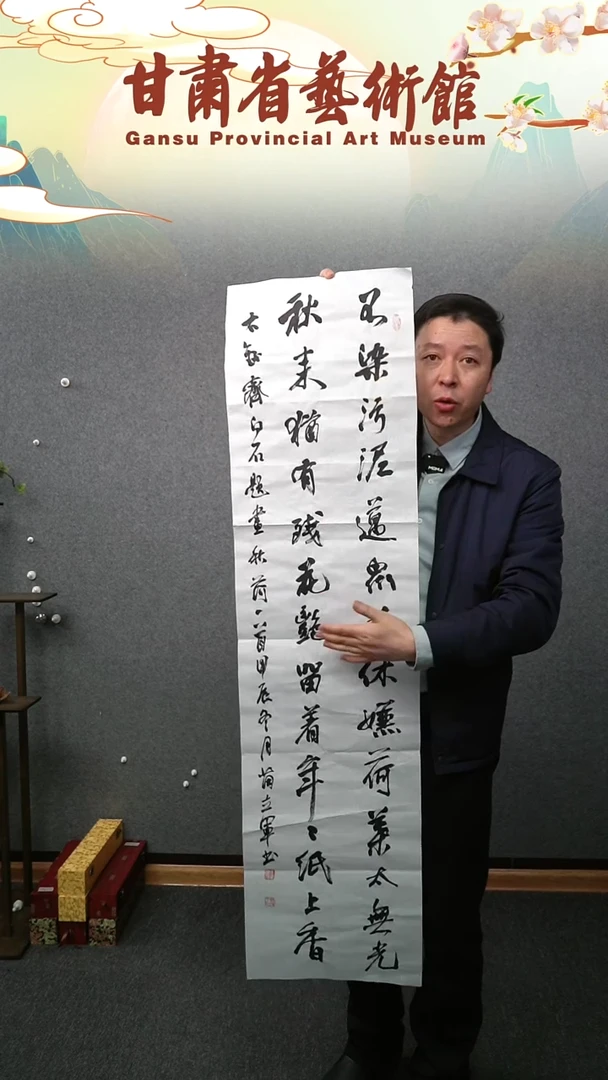 甘肅省藝術館
Gansu Provincial Art Museum
不染污泥邁眾休嫌荷葉太無光
秋来猶有残花艷留着年々紙上香
右錄齊白石題畫秋荷一首甲辰冬月苟立軍书